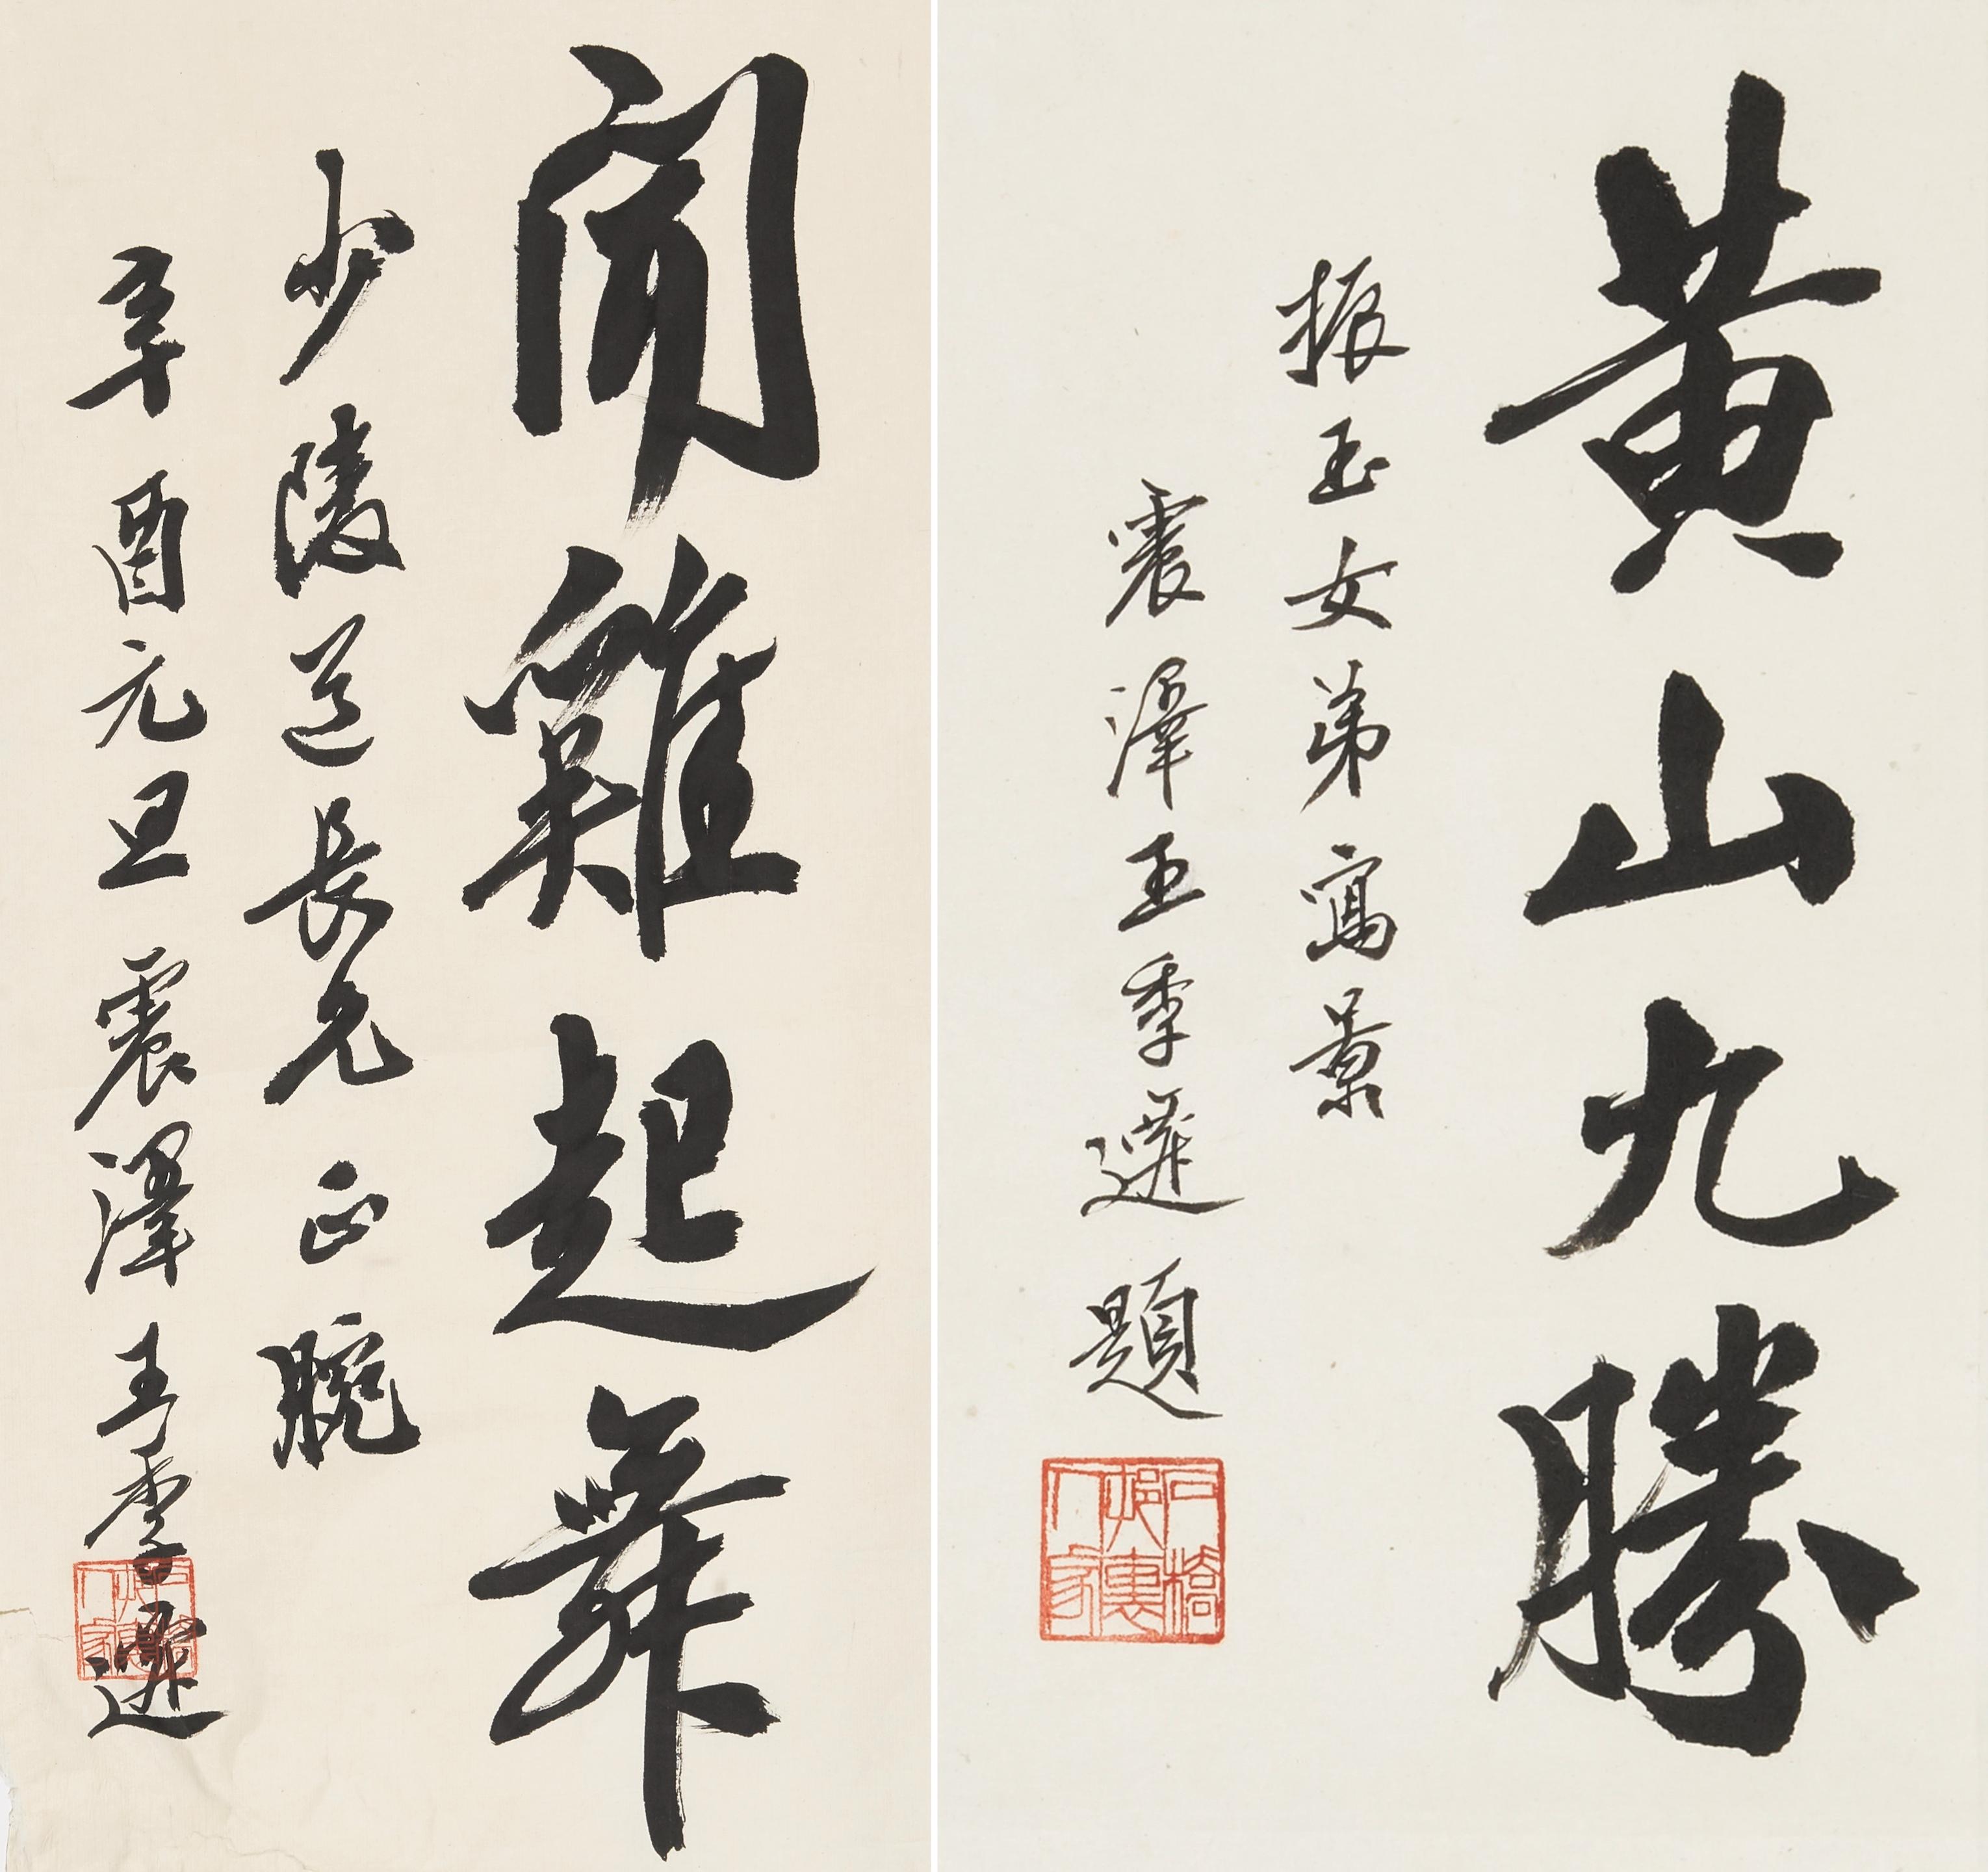 聞雞起舞
少陵道長兄正腕
辛酉元旦震澤王季遷
黃山九勝
振玉女弟寫景
震澤王季遷題